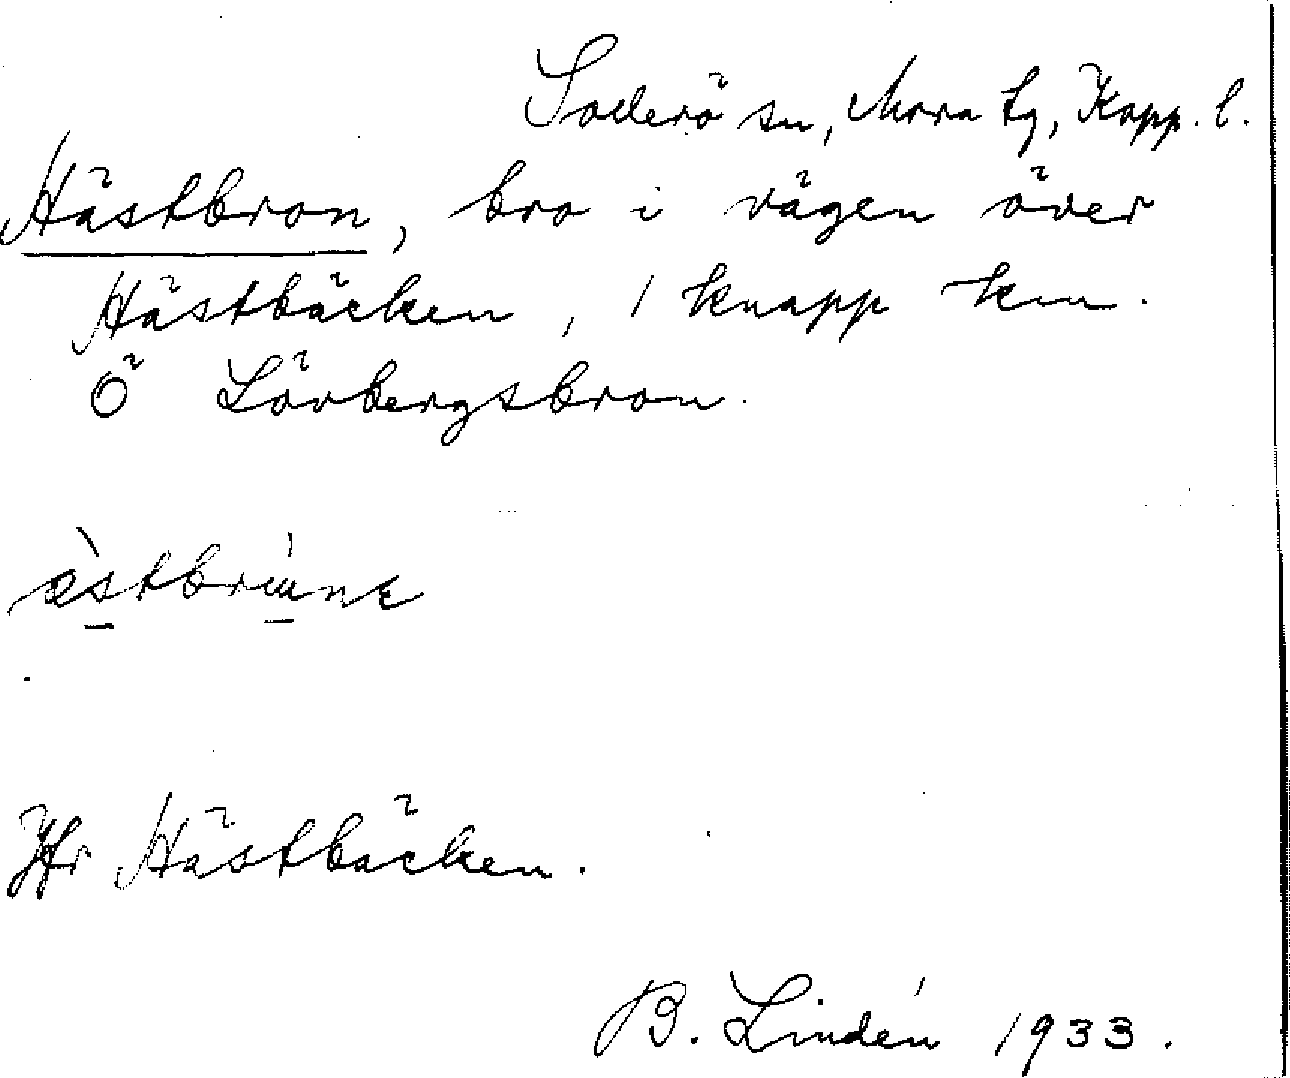 Sollerö sn, Mora tg, Kopp. l.
Hästbron, bro i vägen över
Hästbäcken, 1 knapp km.
Ö Lövbergsbron.
Jfr Hästbäcken.
B. Lindén 1933.